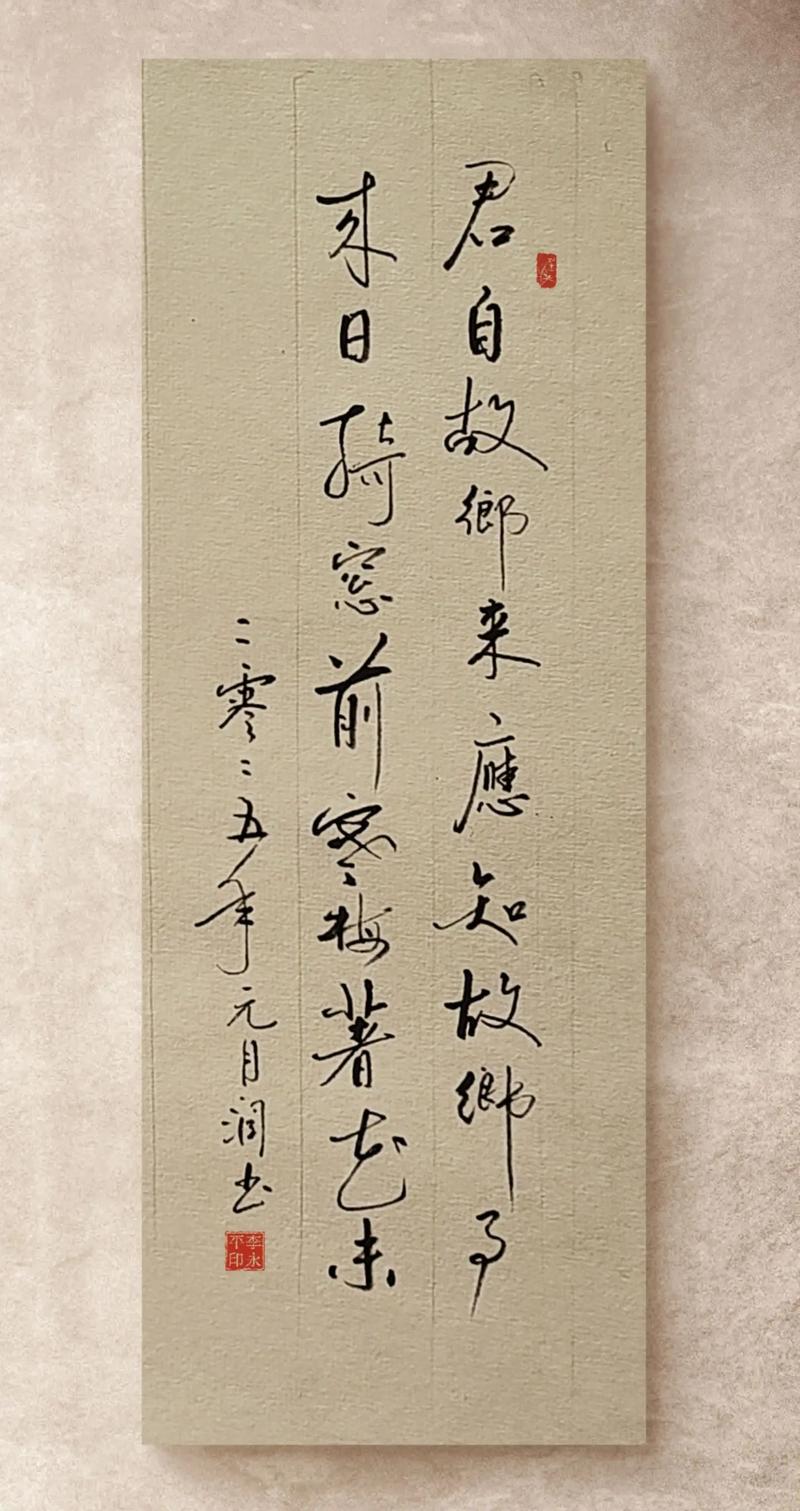 君自故鄉来應知故鄉事
来日綺窓前寒梅著花未
二零二五年元月潤书
李永平印